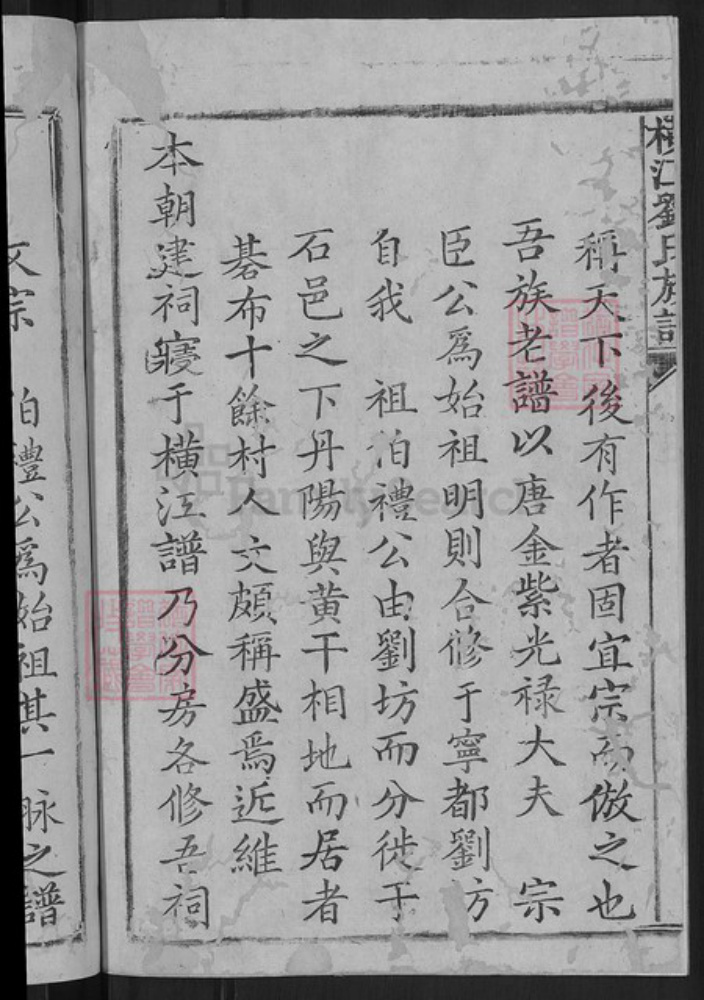 橫江劉氏族譜
稱天下後有作者固宜宗而倣之也
吾族老譜以唐金紫光禄大夫 宗
臣公爲始祖明則合修于寧都劉坊
自我 祖伯禮公由劉坊而分徙于
石邑之下丹陽與黄干相地而居者
碁布十餘村人文頗稱盛焉近維
本朝建祠寢于橫江譜乃分房各修吾祠
文宗 伯禮公爲始祖其一脉之譜